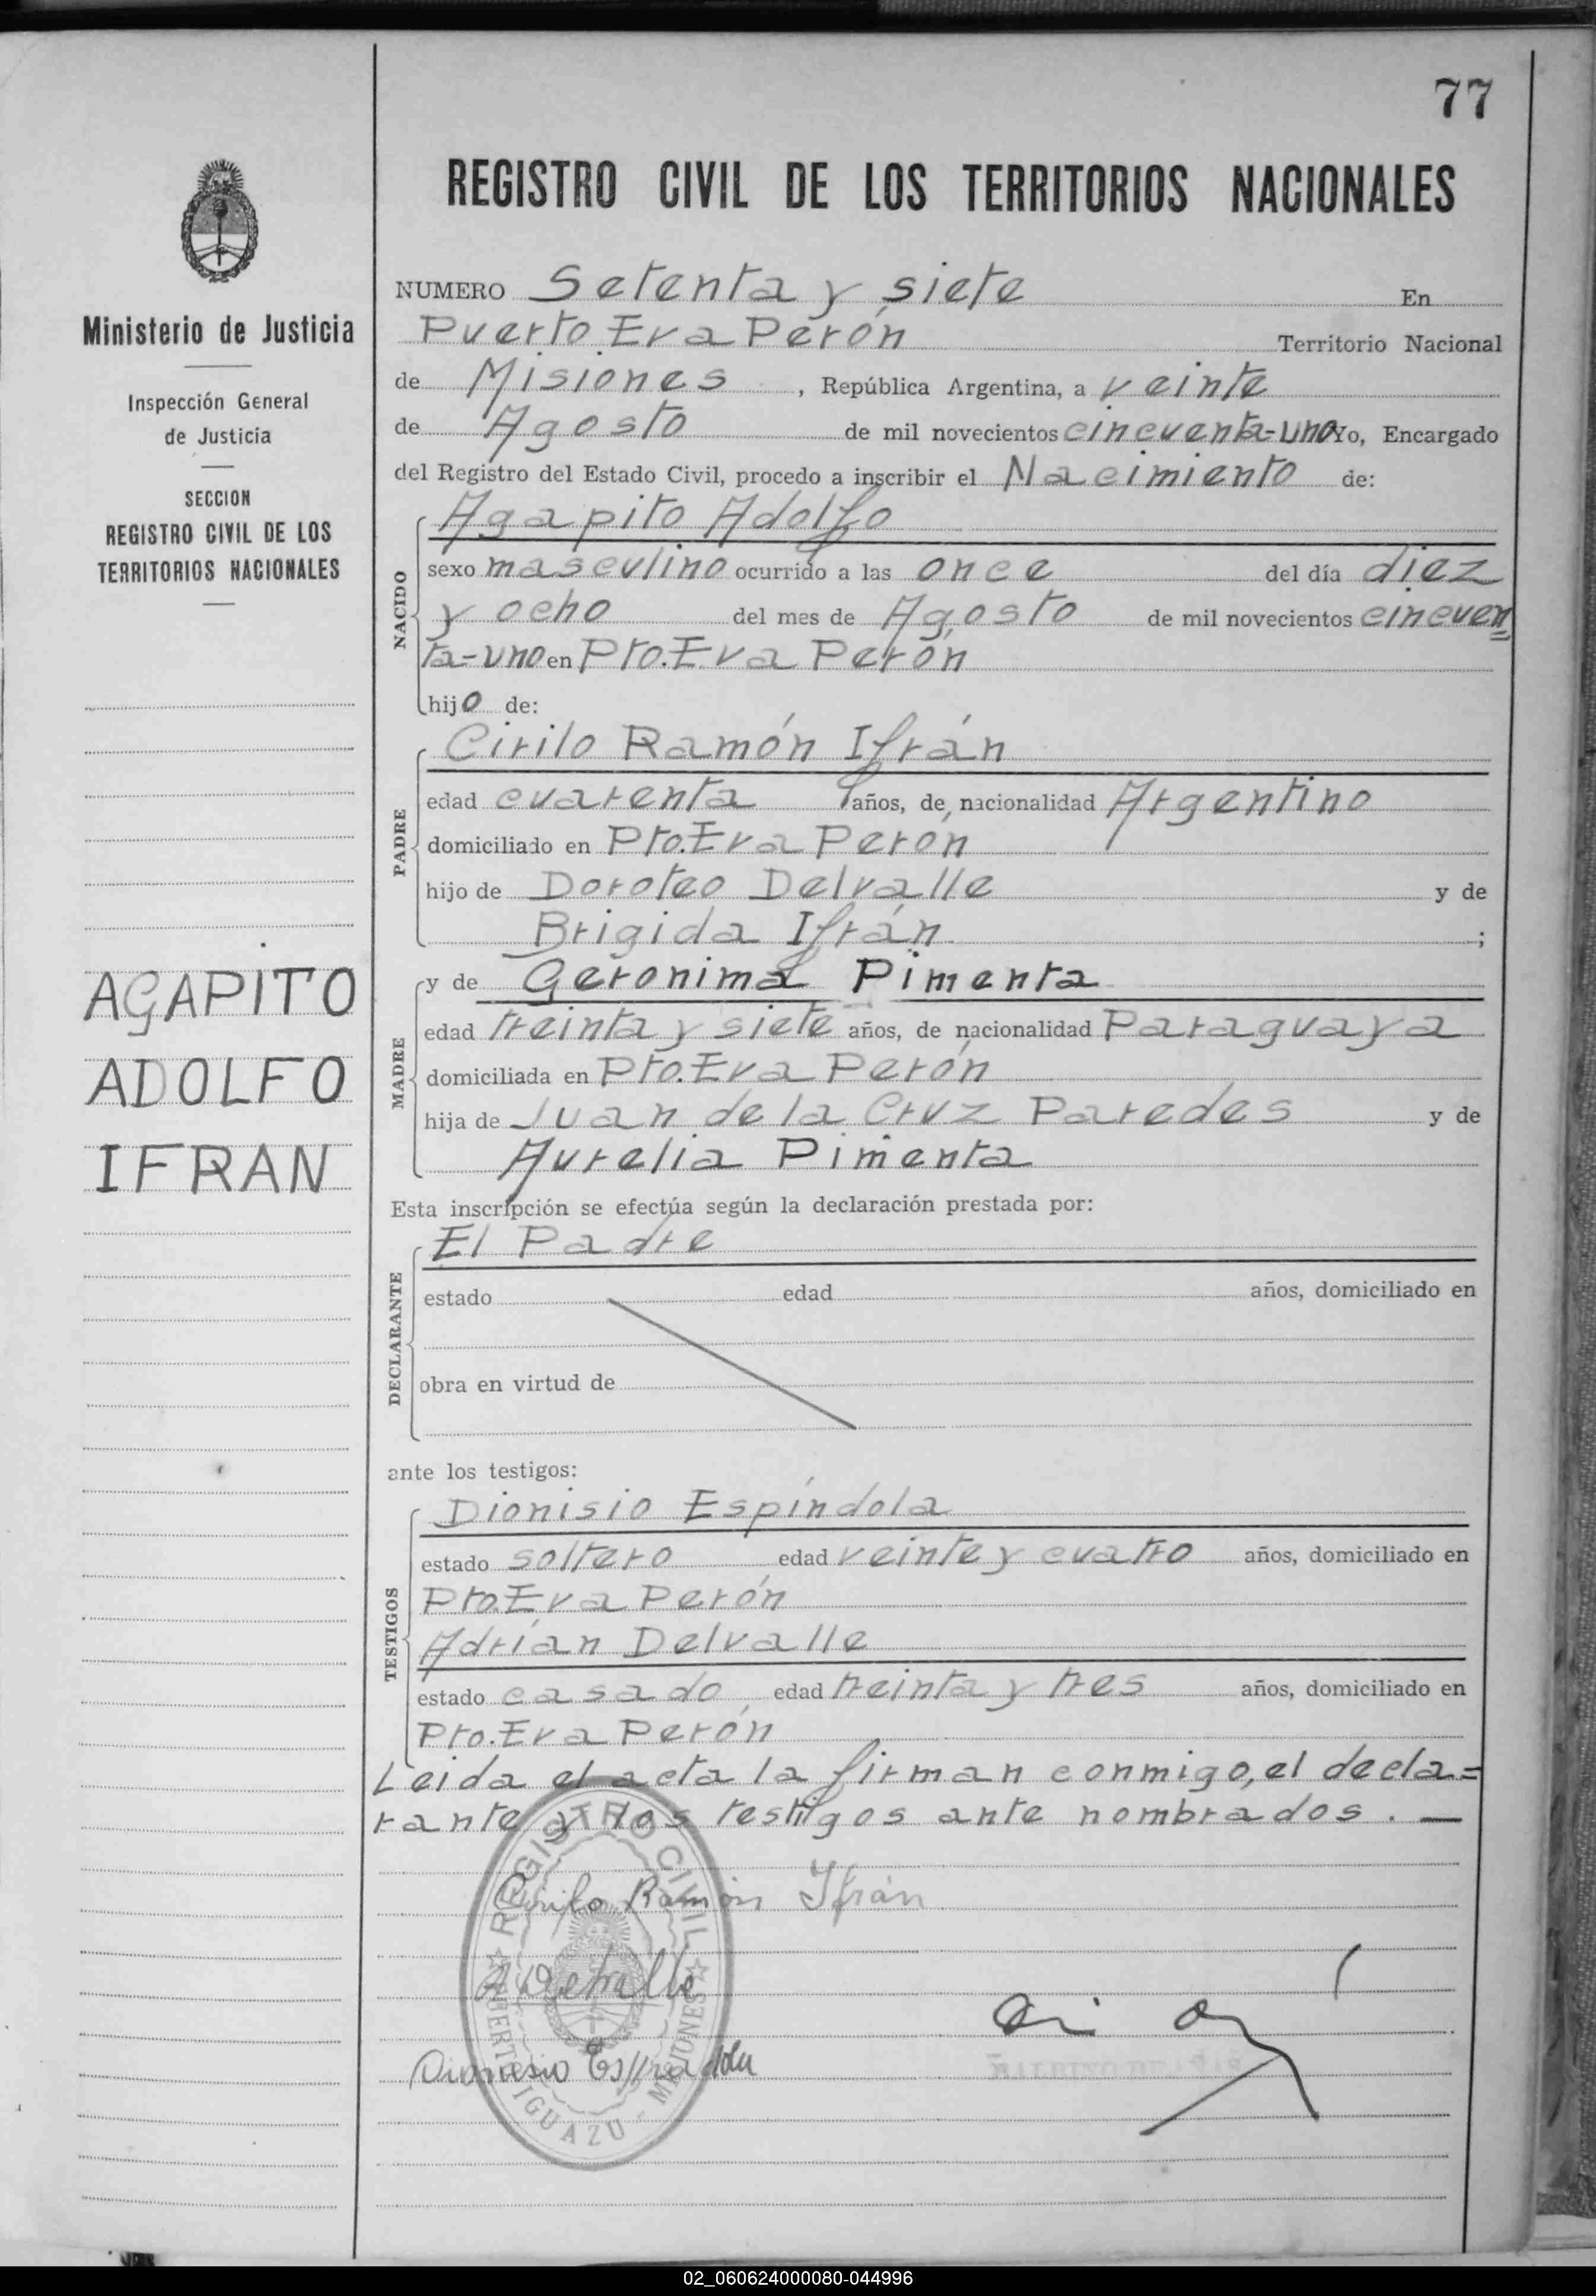 77
REGISTRO CIVIL DE LOS TERRITORIOS NACIONALES
Ministerio de Justicia
Inspección General
de Justicia
SECCION
REGISTRO CIVIL DE LOS
TERRITORIOS NACIONALES
AGAPITO
ADOLFO
IFRAN
NUMERO Setenta y siete En
Puerto Eva Perón Territorio Nacional
de Misiones, República Argentina, a veinte
de Agosto de mil novecientos cincuenta-uno Yo, Encargado
del Registro del Estado Civil, procedo a inscribir el Nacimiento de:
NACIDO
Agapito Adolfo
sexo masculino ocurrido a las once del día diez
y ocho del mes de Agosto de mil novecientos cincuen=
ta-uno en Pto. Eva Perón
hijo de:
PADRE
Cirilo Ramón Ifrán
edad cuarenta años, de nacionalidad Argentino
domiciliado en Pto. Eva Perón
hijo de Doroteo Delvalle y de
Brigida Ifrán ;
MADRE
y de Geronima Pimenta
edad treinta y siete años, de nacionalidad Paraguaya
domiciliada en Pto. Eva Perón
hija de Juan de la Cruz Paredes y de
Aurelia Pimenta
Esta inscripción se efectúa según la declaración prestada por:
DECLARANTE
El Padre
estado edad años, domiciliado en
obra en virtud de
ante los testigos:
TESTIGOS
Dionisio Espíndola
estado soltero edad veinte y cuatro años, domiciliado en
Pto. Eva Perón
Adrían Delvalle
estado casado edad treinta y tres años, domiciliado en
Pto. Eva Perón
Leida el acta la firman conmigo, el decla=
rante y los testigos ante nombrados. —
Cirilo Ramón Ifrán
A Delvalle
Dionisio Espindola
REGISTRO CIVIL
PUERTO IGUAZU - MISIONES
02_060624000080-044996